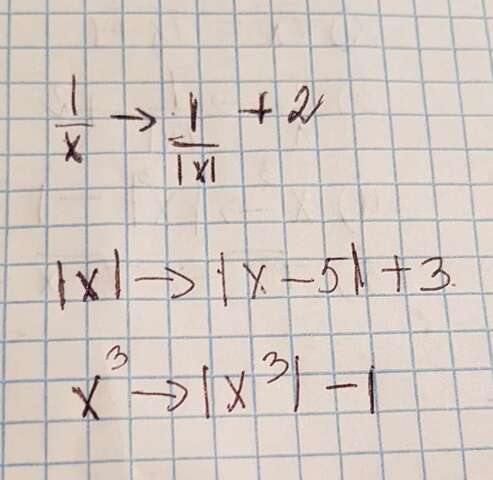 1/x → 1/|x| + 2
|x| → |x - 5| + 3
x³ → |x³| - 1